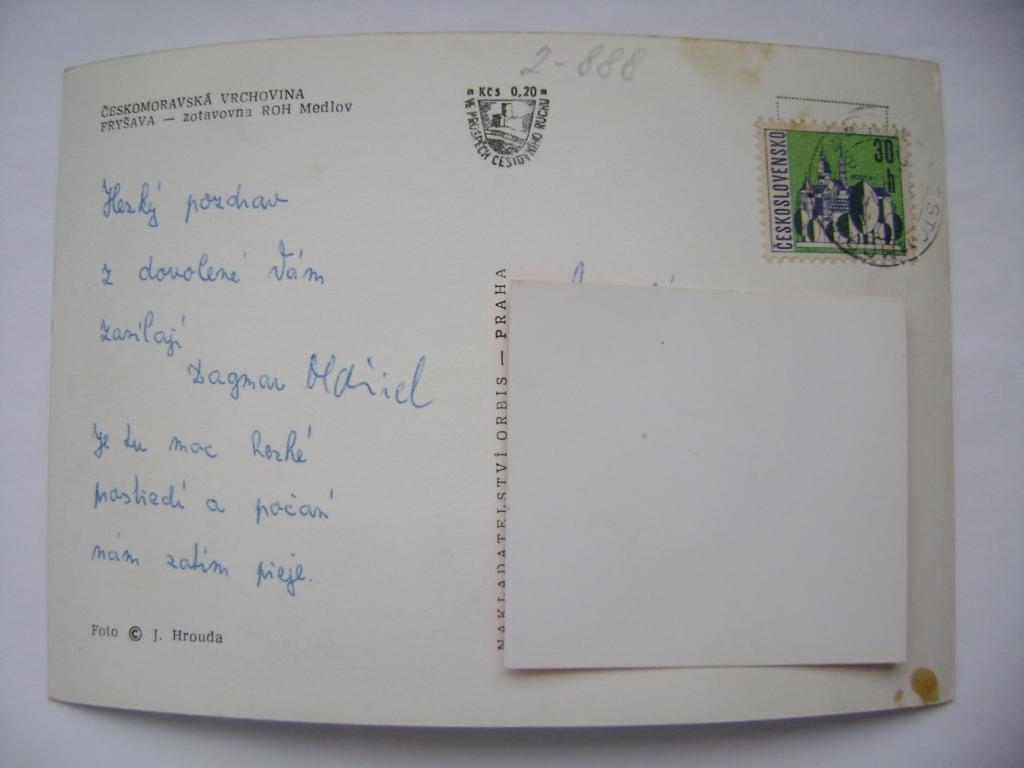 2-888
ČESKOMORAVSKÁ VRCHOVINA
FRYŠAVA — zotavovna ROH Medlov
Kčs 0,20
VE PROSPĚCH CESTOVNÍHO RUCHU
ČESKOSLOVENSKO
30
h
Hezký pozdrav
z dovolené Vám
zasílají
Dagmar Oldřich
Je tu moc hezké
prostředí a počasí
nám zatím přeje.
NAKLADATELSTVÍ ORBIS — PRAHA
Foto © J. Hrouda